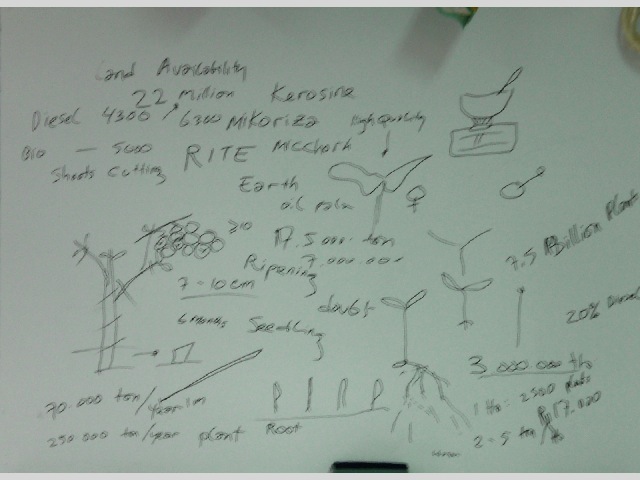 Land Availability
22 Million Kerosine
Diesel 4300 / 6300 Mikoriza High Quality
Bio — 5000 RITE
Shoots Cutting
Earth
oil palm
17.5.000. ton
7.5 Billion Plant
Ripening 7.000.000
7 - 10 cm
doubt
20% Diesel
6 months Seedling
3 000 000 th
70.000 ton/year 1m
1 Ha = 2500 plants
250 000 ton/year plant Root
2 - 5 ton/